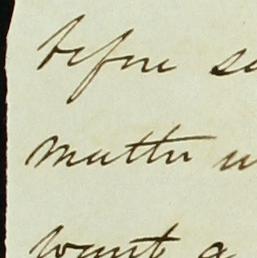 before
matter
want a